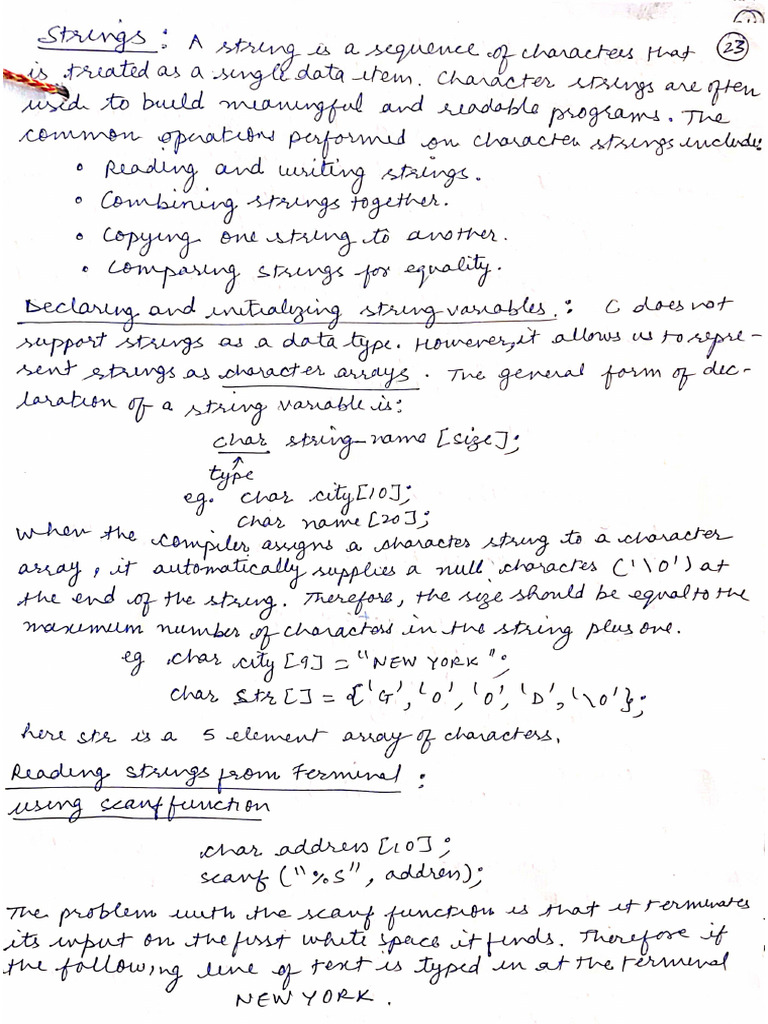 Strings : A string is a sequence of characters that 23
is treated as a single data item. Character strings are often
used to build meaningful and readable programs. The
common operations performed on character strings include:
• Reading and writing strings.
• Combining strings together.
• Copying one string to another.
• Comparing strings for equality.
Declaring and initializing string variables : C does not
support strings as a data type. However, it allows us to repre-
sent strings as character arrays. The general form of dec-
laration of a string variable is:
char string_name [size];
↑
type
eg. char city[10];
char name[20];
when the compiler assigns a character string to a character
array, it automatically supplies a null character ('\0') at
the end of the string. Therefore, the size should be equal to the
maximum number of characters in the string plus one.
eg char city [9] = "NEW YORK";
char str [] = {'G', 'O', 'O', 'D', '\0'};
here str is a 5 element array of characters.
Reading strings from Terminal :
using scanf function
char address [10];
scanf ("%s", address);
The problem with the scanf function is that it terminates
its input on the first white space it finds. Therefore if
the following line of text is typed in at the terminal
NEW YORK.